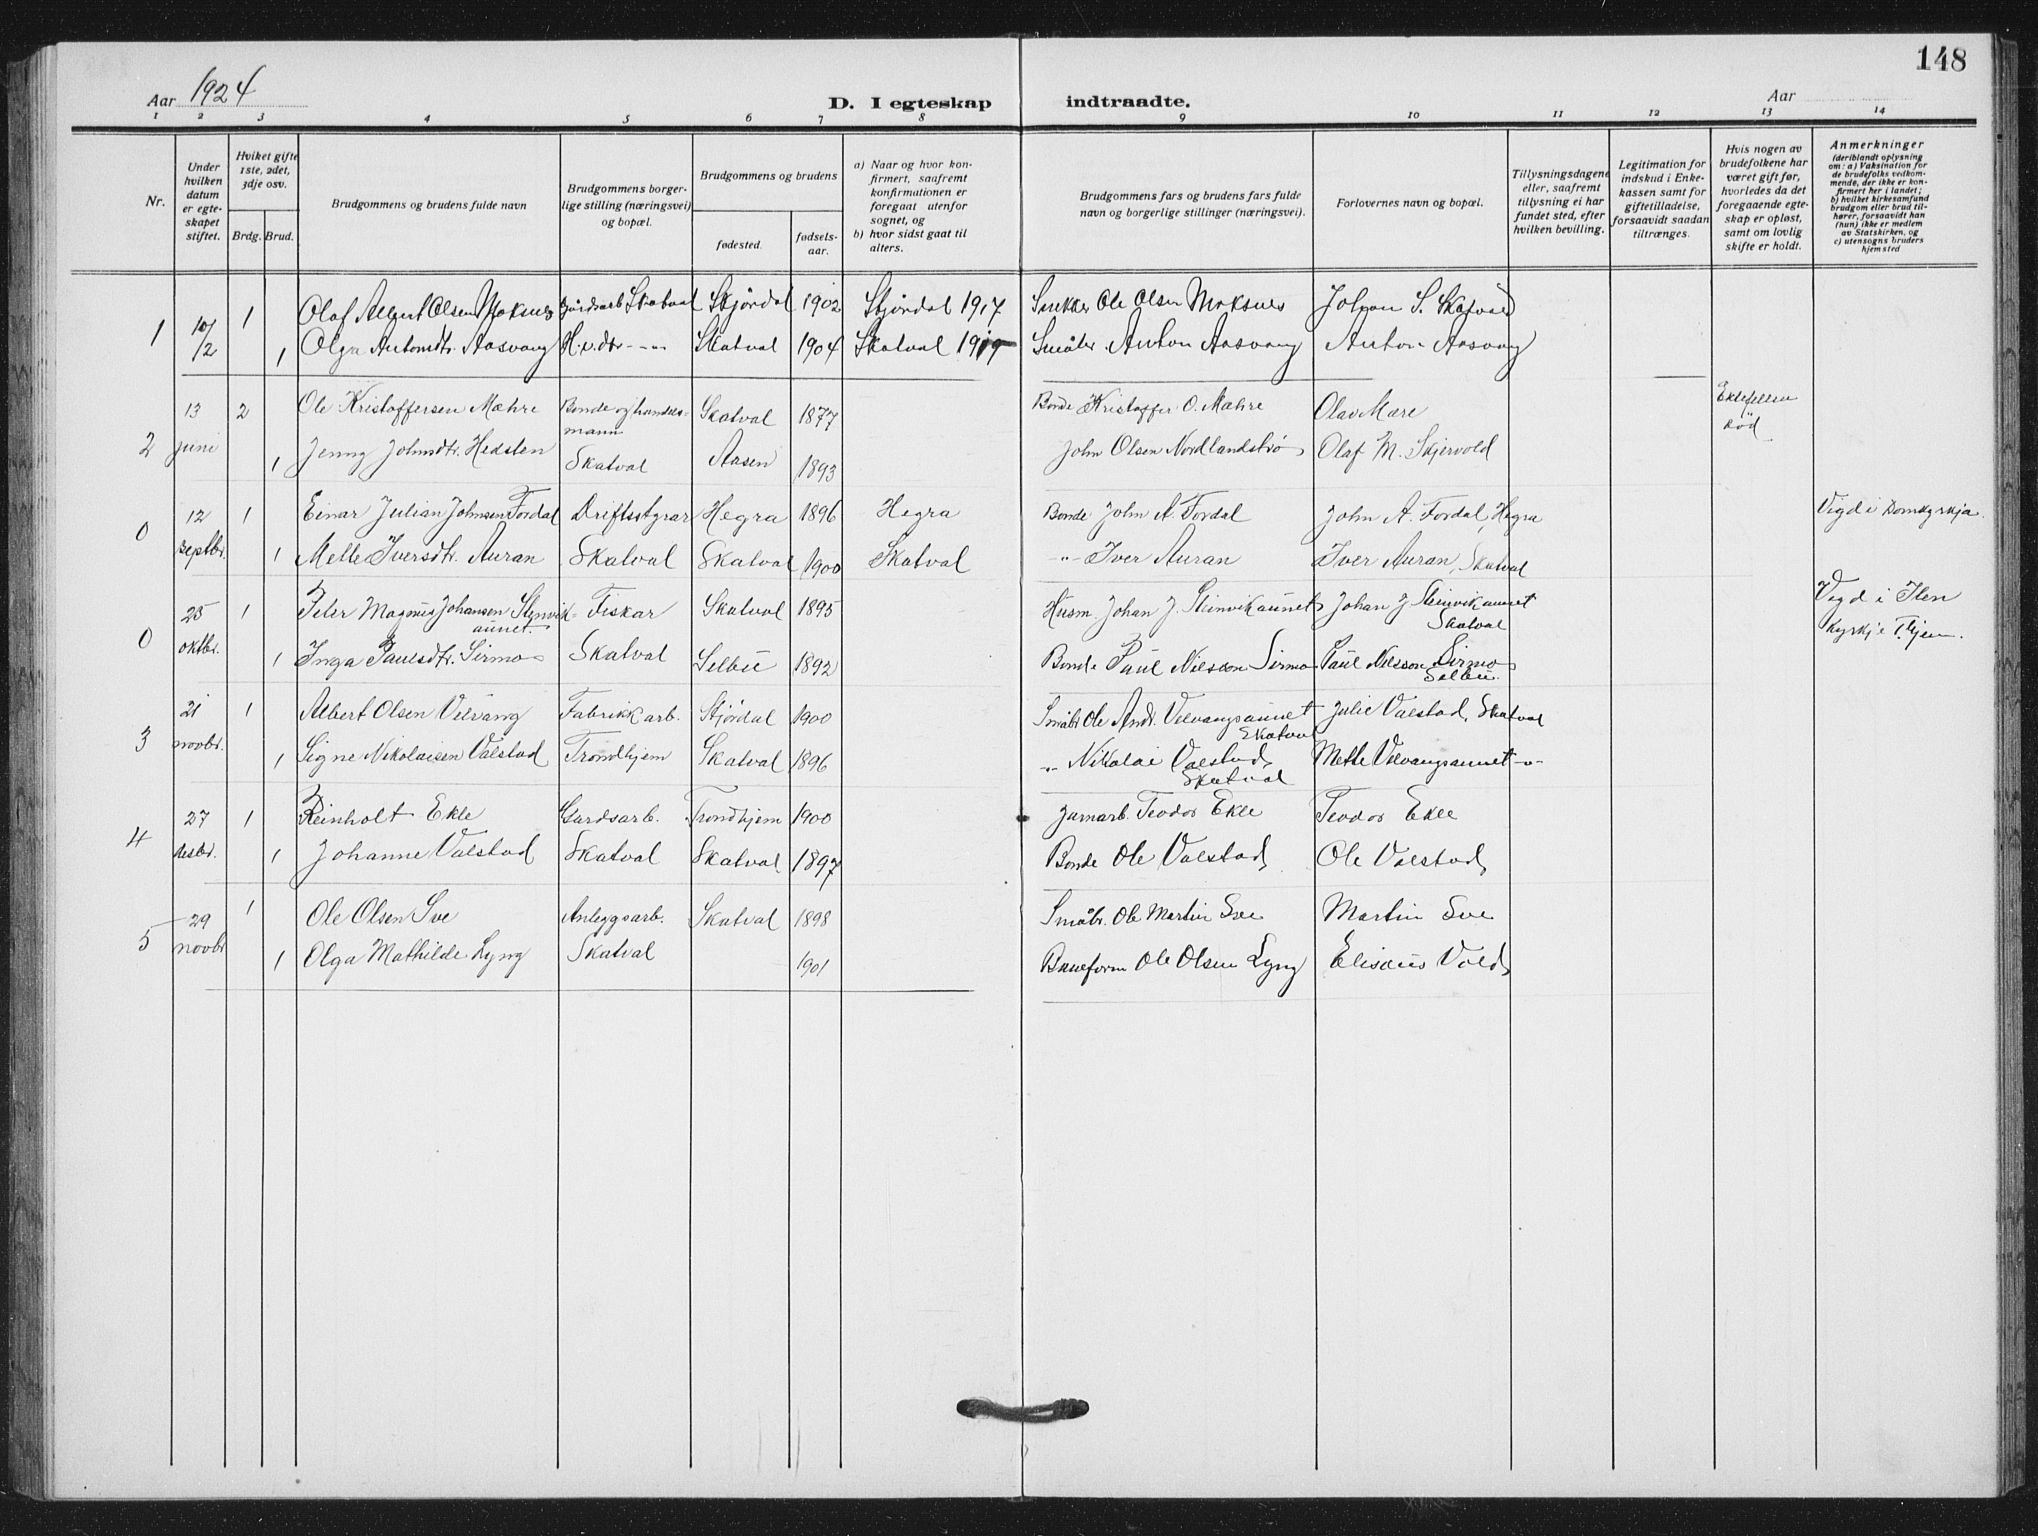 148
Aar 1924
D. I egteskap indtraadte.
Aar
1 2 3 4 5 6 7 8 9 10 11 12 13 14
Nr.
Under hvilken datum er egteskapet stiftet.
Hviket gifte 1ste, 2det, 3dje osv.
Brdg. Brud.
Brudgommens og brudens fulde navn
Brudgommens borgerlige stilling (næringsvei) og bopæl.
Brudgommens og brudens
fødested.
fødselsaar.
a) Naar og hvor konfirmert, saafremt konfirmationen er foregaat utenfor sognet, og
b) hvor sidst gaat til alters.
Brudgommens fars og brudens fars fulde navn og borgerlige stillinger (næringsvei).
Forlovernes navn og bopæl.
Tillysningsdagene eller, saafremt tillysning ei har fundet sted, efter hvilken bevilling.
Legitimation for indskud i Enkekassen samt for giftetilladelse, forsaavidt saadan tiltrænges.
Hvis nogen av brudefolkene har været gift før, hvorledes da det foregaaende egteskap er opløst, samt om lovlig skifte er holdt.
Anmerkninger
(deriblandt oplysning om: a) Vaksination for de brudefolks vedkommende, der ikke er konfirmert her i landet; b) hvilket kirkesamfund brudgom eller brud tilhører, forsaavidt han (hun) ikke er medlem av Statskirken, og c) utensogns bruders hjemsted
1 10/2 1 Olaf Albert Olsen Moksnes Gårdsarb Skatval Stjørdal 1902 Stjørdal 1917 Snekker Ole Olsen Moksnes Johan S. Skatval
1 Olga Antondtr. Aasvang H.v.dtr -"- Skatval 1904 Skatval 1919 Småbr. Anton Aasvang Anton Aasvang
2 13 juni 2 Ole Kristoffersen Mæhre Bonde og handelsmann Skatval 1877 Bonde Kristoffer O. Mæhre Olav Mære Ektefellen død
1 Jenny Johnsdtr. Hedsten Skatval Aasen 1893 John Olsen Nordlandstrø Olaf M. Skjervold
0 12 septbr. 1 Einar Julian Johnsen Fordal Driftsstyrar Hegra 1896 Hegra Bonde John A. Fordal John A. Fordal, Hegra Vigd i Domkyrkja.
1 Mette Iversdtr. Auran Skatval Skatval 1900 Skatval -"- Iver Auran Iver Auran, Skatval
0 25 oktbr. 1 Peter Magnus Johansen Stenvikaunet. Fiskar Skatval 1895 Husm. Johan J. Steinvikaunet Johan J Steinvikaunet Skatval Vigd i Ilen kyrkje Thjem.
1 Inga Paulsdtr. Sirmo Skatval Selbu 1892 Bonde Paul Nilsson Sirmo Paul Nilsson Sirmo Selbu.
3 21 novbr. 1 Albert Olsen Velvang Fabrikkarb. Stjørdal 1900 Småbr Ole Andr. Velvangsaunet Skatval Julie Valstad, Skatval
1 Signe Nikolaisen Valstad Trondhjem Skatval 1896 -"- Nikolai Valstad, Skatval Mette Velvangsaunet -"-
4 27 desbr. 1 Reinholt Ekle Gardsarb. Trondhjem 1900 Jarnarb. Teodor Ekle Teodor Ekle
1 Johanne Valstad Skatval Skatval 1897 Bonde Ole Valstad Ole Valstad
5 29 novbr 1 Ole Olsen Sve Anleggsarb. Skatval 1898 Småbr. Ole Martin Sve Martin Sve
1 Olga Mathilde Lyng Skatval 1901 Baneform Ole Olsen Lyng Elisæus Vold